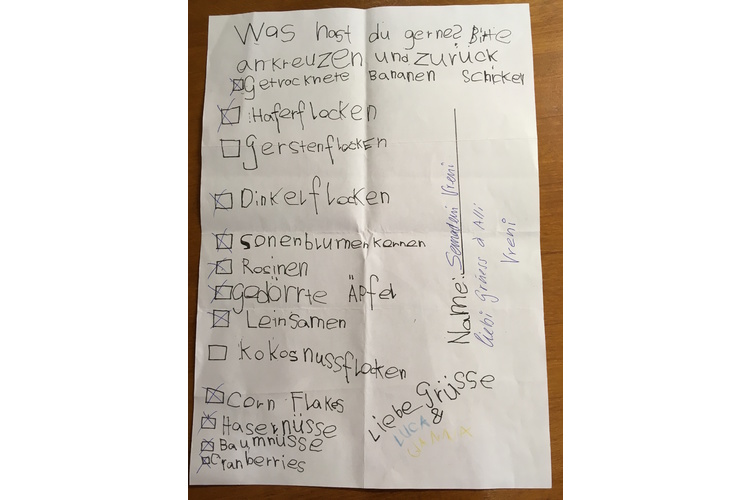 Was hast du gerne? Bitte
ankreuzen und zurück
Getrocknete Bananen Schicken
Haferflocken
Gerstenflocken
Dinkelflocken
Sonenblumenkernen
Rosinen
gedörrte Äpfel
Leinsamen
Kokosnussflocken
Corn Flakes
Hasernüsse
Baumnüsse
Cranberries
Name: Vreni
liebi Grüess a Alli
Vreni
Liebe Grüsse
&
LUCA